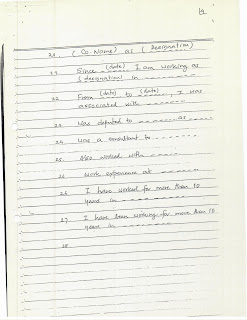 19
20. (Co Name) as (Designation)
21. Since (date) I am working as
(designation) in
22. From (date) to (date), I was
associated with
23. Was deputed to as
24. Was a consultant to
25. Also worked with
26. Work experience at
26. I have worked for more than 10
years in
27. I have been working for more than 10
years in
28